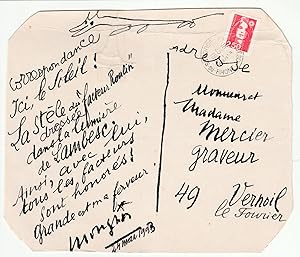 correspondance
Ici, le Soleil !
La Stèle du "facteur Roulin"
dressée
dans la lumière
de Lambesc !
Ainsi, avec lui,
tous les facteurs
sont honorés !
grande est ma ferveur !
24 mai 1993
adresse
2,50
Monsieur et
Madame
Mercier
graveur
49 Vernoil
le Fourier